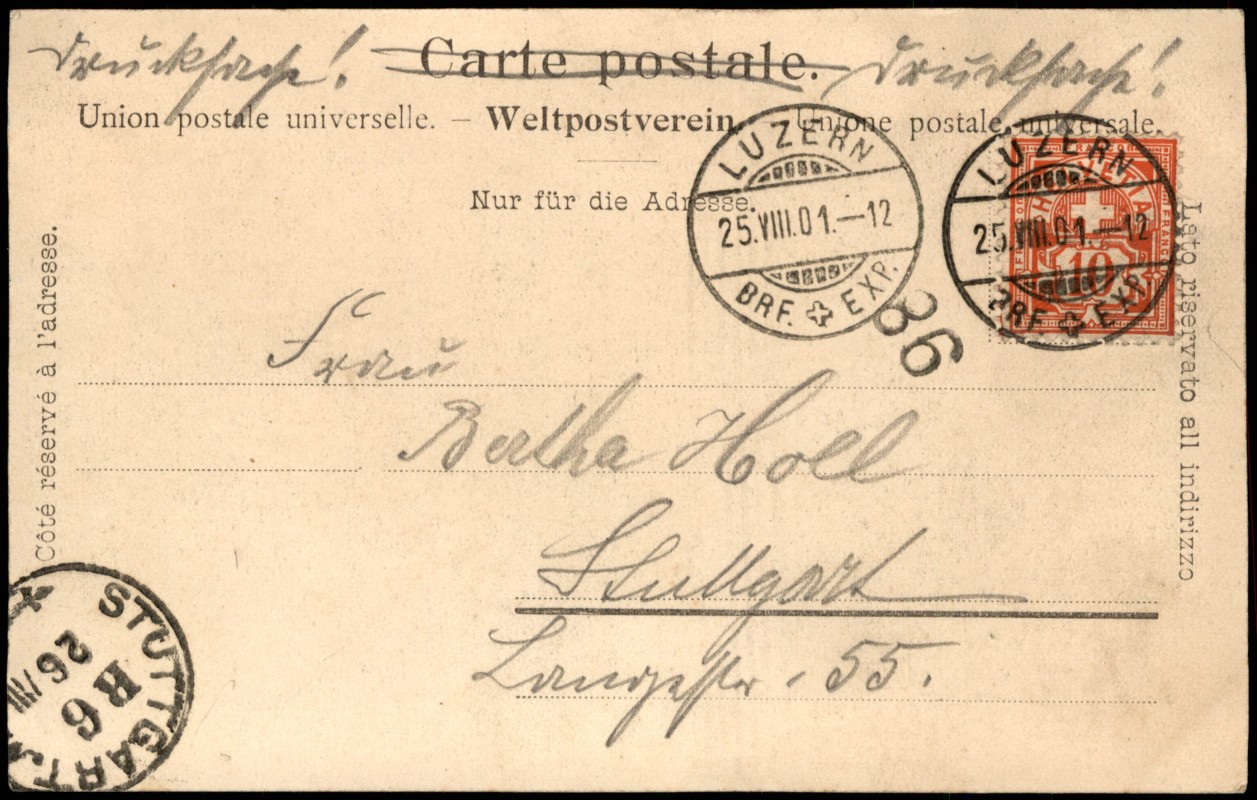 Drucksache! Carte postale. Drucksache!
Union postale universelle. – Weltpostverein. – Unione postale universale.
Nur für die Adresse.
LUZERN
25.VIII.01.—12
BRF. EXP.
LUZERN
25.VIII.01.—12
BRF. EXP.
HELVETIA
FRANCO
10
86
Côté réservé à l'adresse.
Lato riservato all indirizzo
Frau
Bertha Holl
Stuttgart
Langestr. 55.
STUTTGART
R 6
26/VIII